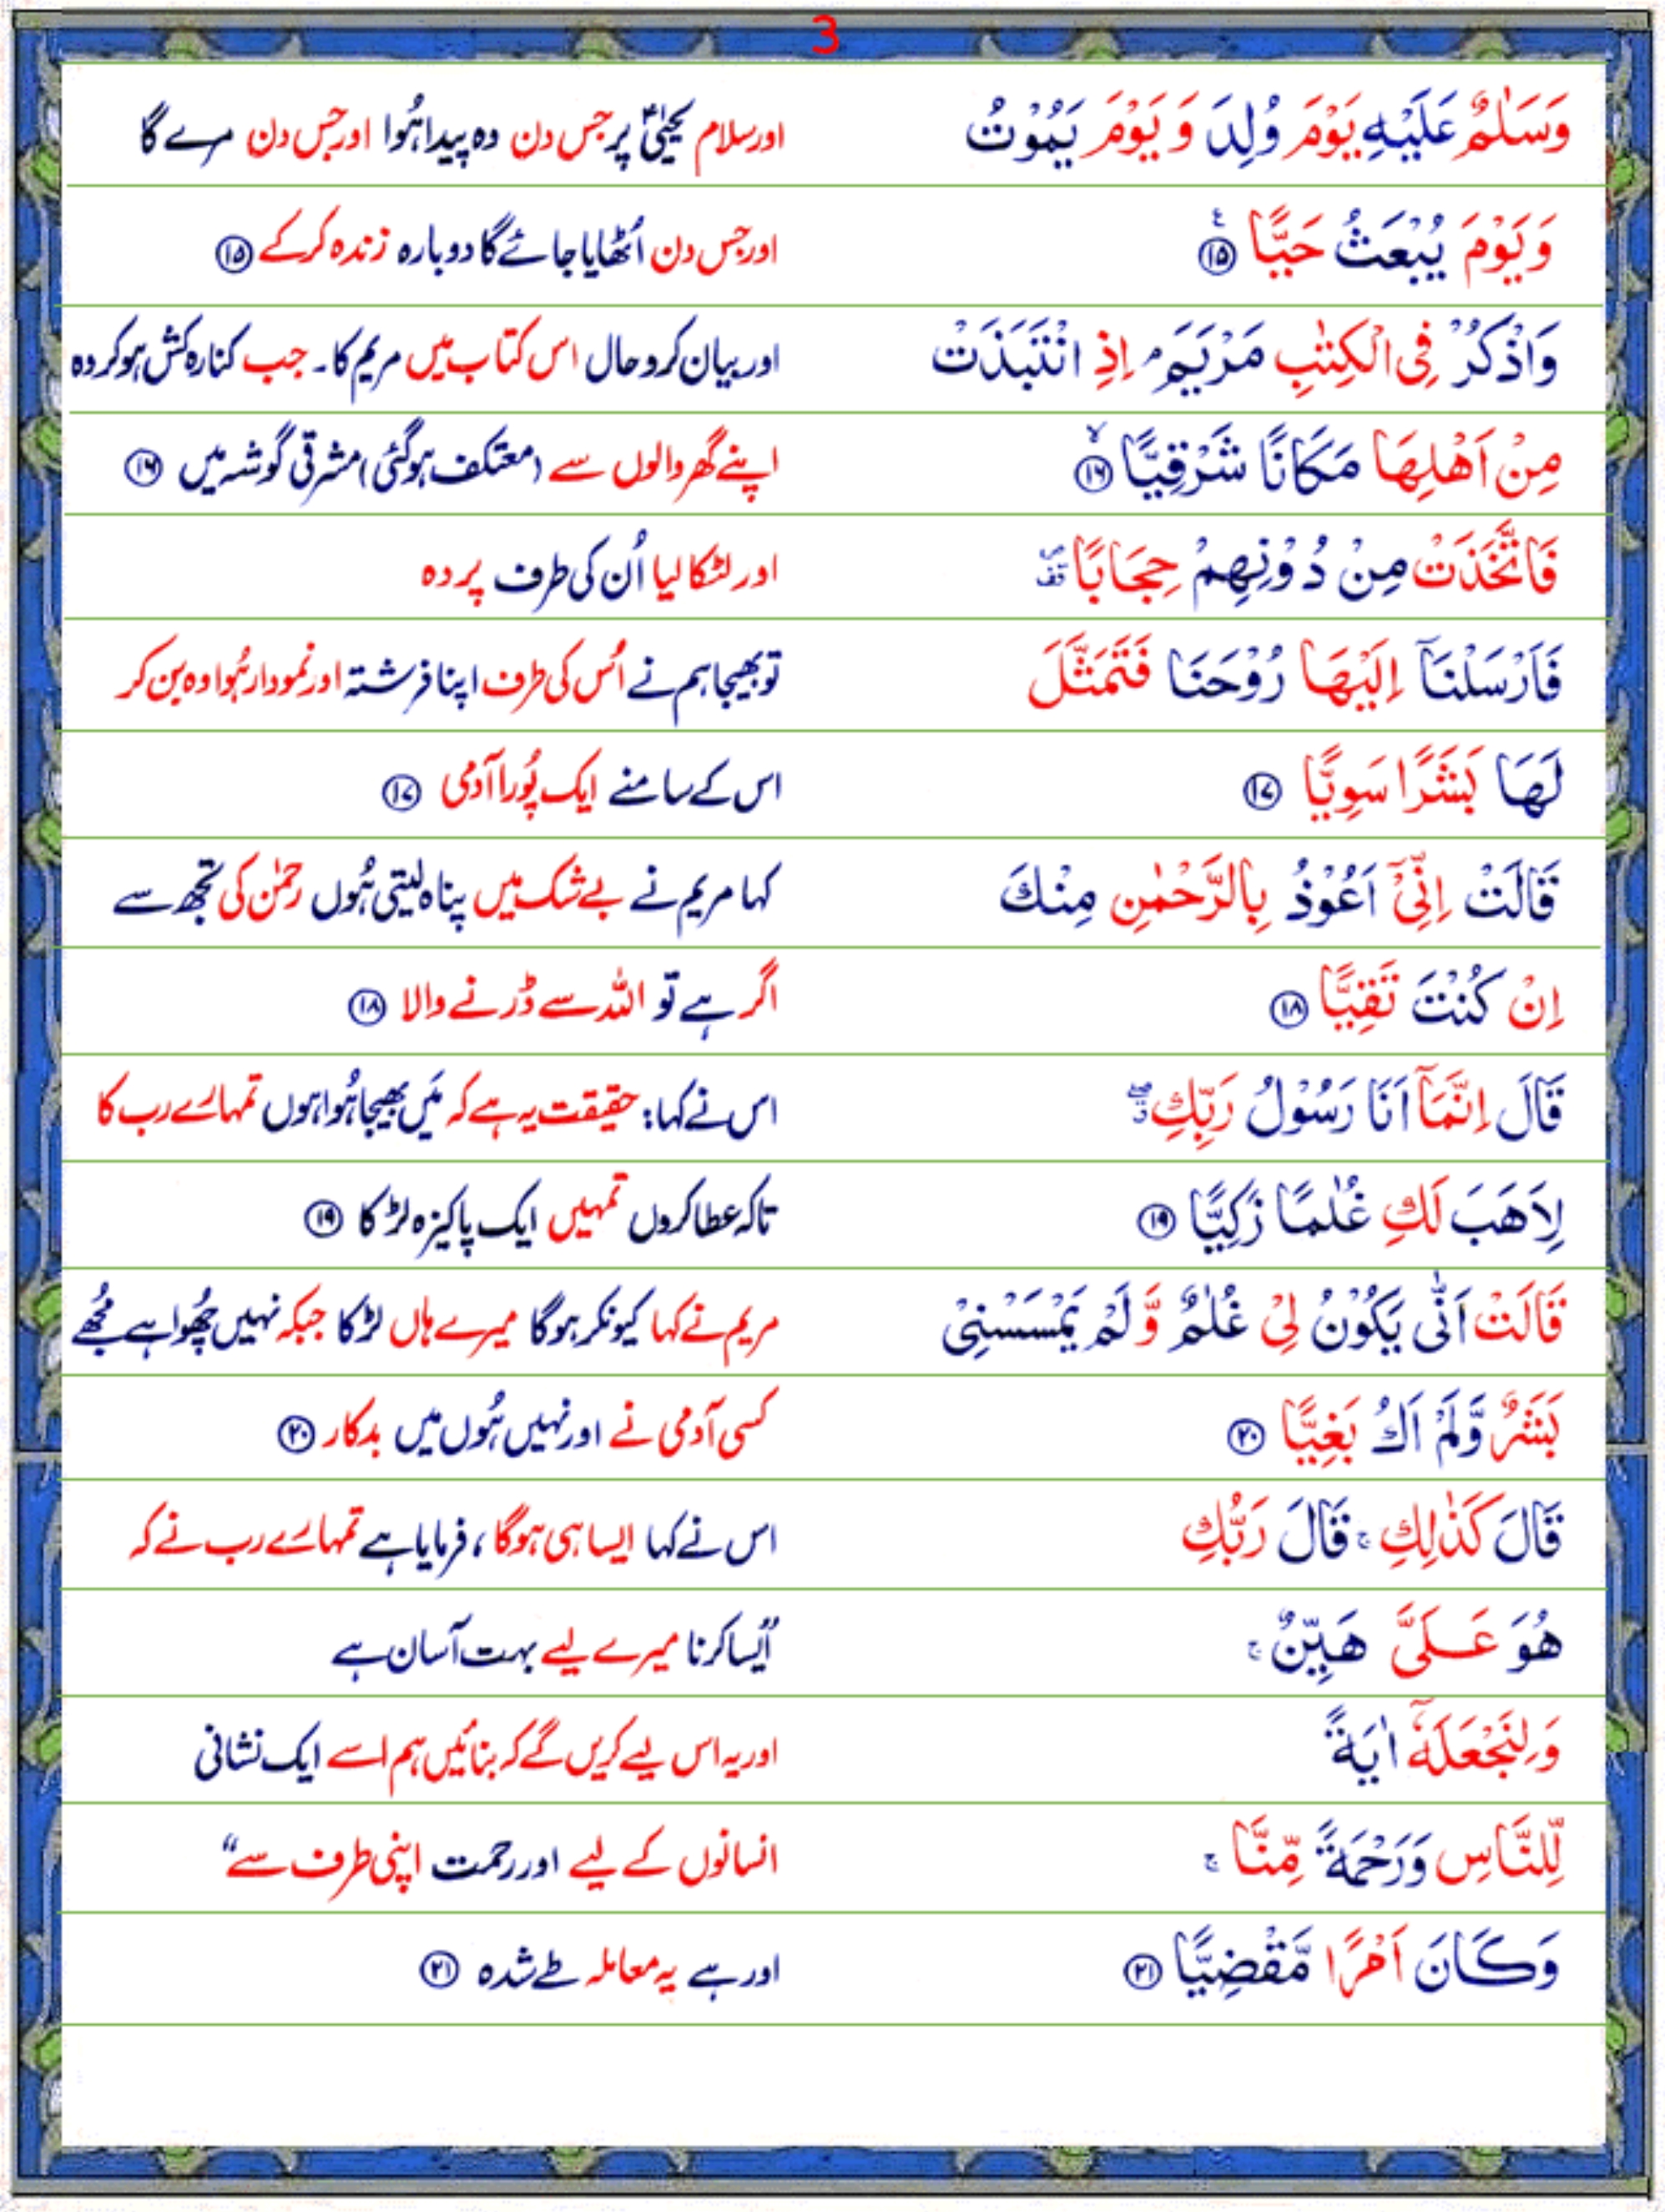 3
وَسَلٰمٌ عَلَيْهِ يَوْمَ وُلِدَ وَ يَوْمَ يَمُوْتُ
اور سلام یحییٰؑ پر جس دن وہ پیدا ہُوا اور جس دن مرے گا
وَيَوْمَ يُبْعَثُ حَيًّا ۧ ﴿۱۵﴾
اور جس دن اُٹھایا جائے گا دوبارہ زندہ کرکے ﴿۱۵﴾
وَاذْكُرْ فِى الْكِتٰبِ مَرْيَمَ ۘ اِذِ انْتَبَذَتْ
اور بیان کرو حال اس کتاب میں مریم کا۔ جب کنارہ کش ہوکر وہ
مِنْ اَهْلِهَا مَكَانًا شَرْقِيًّا ۙ ﴿۱۶﴾
اپنے گھر والوں سے (معتکف ہوگئی) مشرقی گوشہ میں ﴿۱۶﴾
فَاتَّخَذَتْ مِنْ دُوْنِهِمْ حِجَابًا
اور لٹکا لیا اُن کی طرف پردہ
فَاَرْسَلْنَاۤ اِلَيْهَا رُوْحَنَا فَتَمَثَّلَ
تو بھیجا ہم نے اُس کی طرف اپنا فرشتہ اور نمودار ہُوا وہ بن کر
لَهَا بَشَرًا سَوِيًّا ﴿۱۷﴾
اس کے سامنے ایک پُورا آدمی ﴿۱۷﴾
قَالَتْ اِنِّىْۤ اَعُوْذُ بِالرَّحْمٰنِ مِنْكَ
کہا مریم نے بے شک میں پناہ لیتی ہُوں رحمٰن کی تجھ سے
اِنْ كُنْتَ تَقِيًّا ﴿۱۸﴾
اگر ہے تو اللہ سے ڈرنے والا ﴿۱۸﴾
قَالَ اِنَّمَاۤ اَنَا رَسُوْلُ رَبِّكِ
اس نے کہا: حقیقت یہ ہے کہ مَیں بھیجا ہُوا ہوں تمہارے رب کا
لِاَهَبَ لَكِ غُلٰمًا زَكِيًّا ﴿۱۹﴾
تاکہ عطا کروں تمہیں ایک پاکیزہ لڑکا ﴿۱۹﴾
قَالَتْ اَنّٰى يَكُوْنُ لِىْ غُلٰمٌ وَّ لَمْ يَمْسَسْنِىْ
مریم نے کہا کیونکر ہوگا میرے ہاں لڑکا جبکہ نہیں چُھوا ہے مُجھے
بَشَرٌ وَّلَمْ اَكُ بَغِيًّا ﴿۲۰﴾
کسی آدمی نے اور نہیں ہُوں میں بدکار ﴿۲۰﴾
قَالَ كَذٰلِكِ ۚ قَالَ رَبُّكِ
اس نے کہا ایسا ہی ہوگا، فرمایا ہے تمہارے رب نے کہ
هُوَ عَلَىَّ هَيِّنٌ ۚ
"ایسا کرنا میرے لیے بہت آسان ہے
وَلِنَجْعَلَهٗۤ اٰيَةً
اور یہ اس لیے کریں گے کہ بنائیں ہم اسے ایک نشانی
لِّلنَّاسِ وَرَحْمَةً مِّنَّا ۚ
انسانوں کے لیے اور رحمت اپنی طرف سے"
وَكَانَ اَمْرًا مَّقْضِيًّا ﴿۲۱﴾
اور ہے یہ معاملہ طے شدہ ﴿۲۱﴾